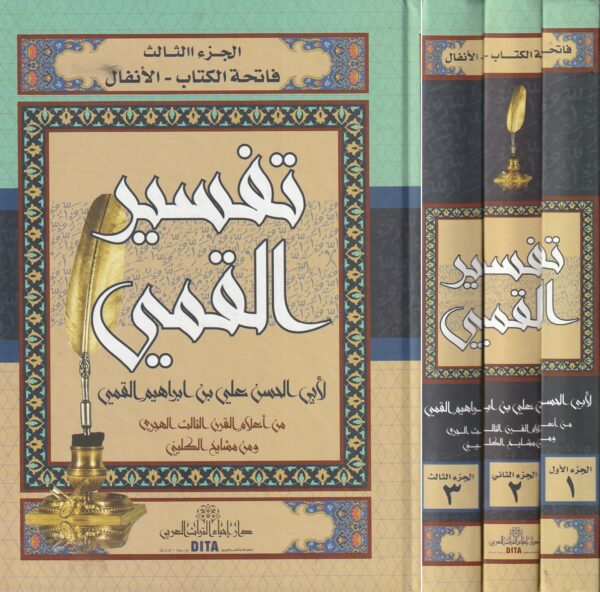 الجزء الثالث
فاتحة الكتاب - الأنفال
تفسير
القمي
لأبي الحسن علي بن ابراهيم القمي
من أعلام القرن الثالث الهجري
ومن مشايخ الكليني
دار إحياء التراث العربي
DITA
فاتحة الكتاب - الأنفال
تفسير
القمي
لأبي الحسن علي بن ابراهيم القمي
من أعلام القرن الثالث الهجري
ومن مشايخ الكليني
الجزء الأول
١
الجزء الثاني
٢
الجزء الثالث
٣
DITA